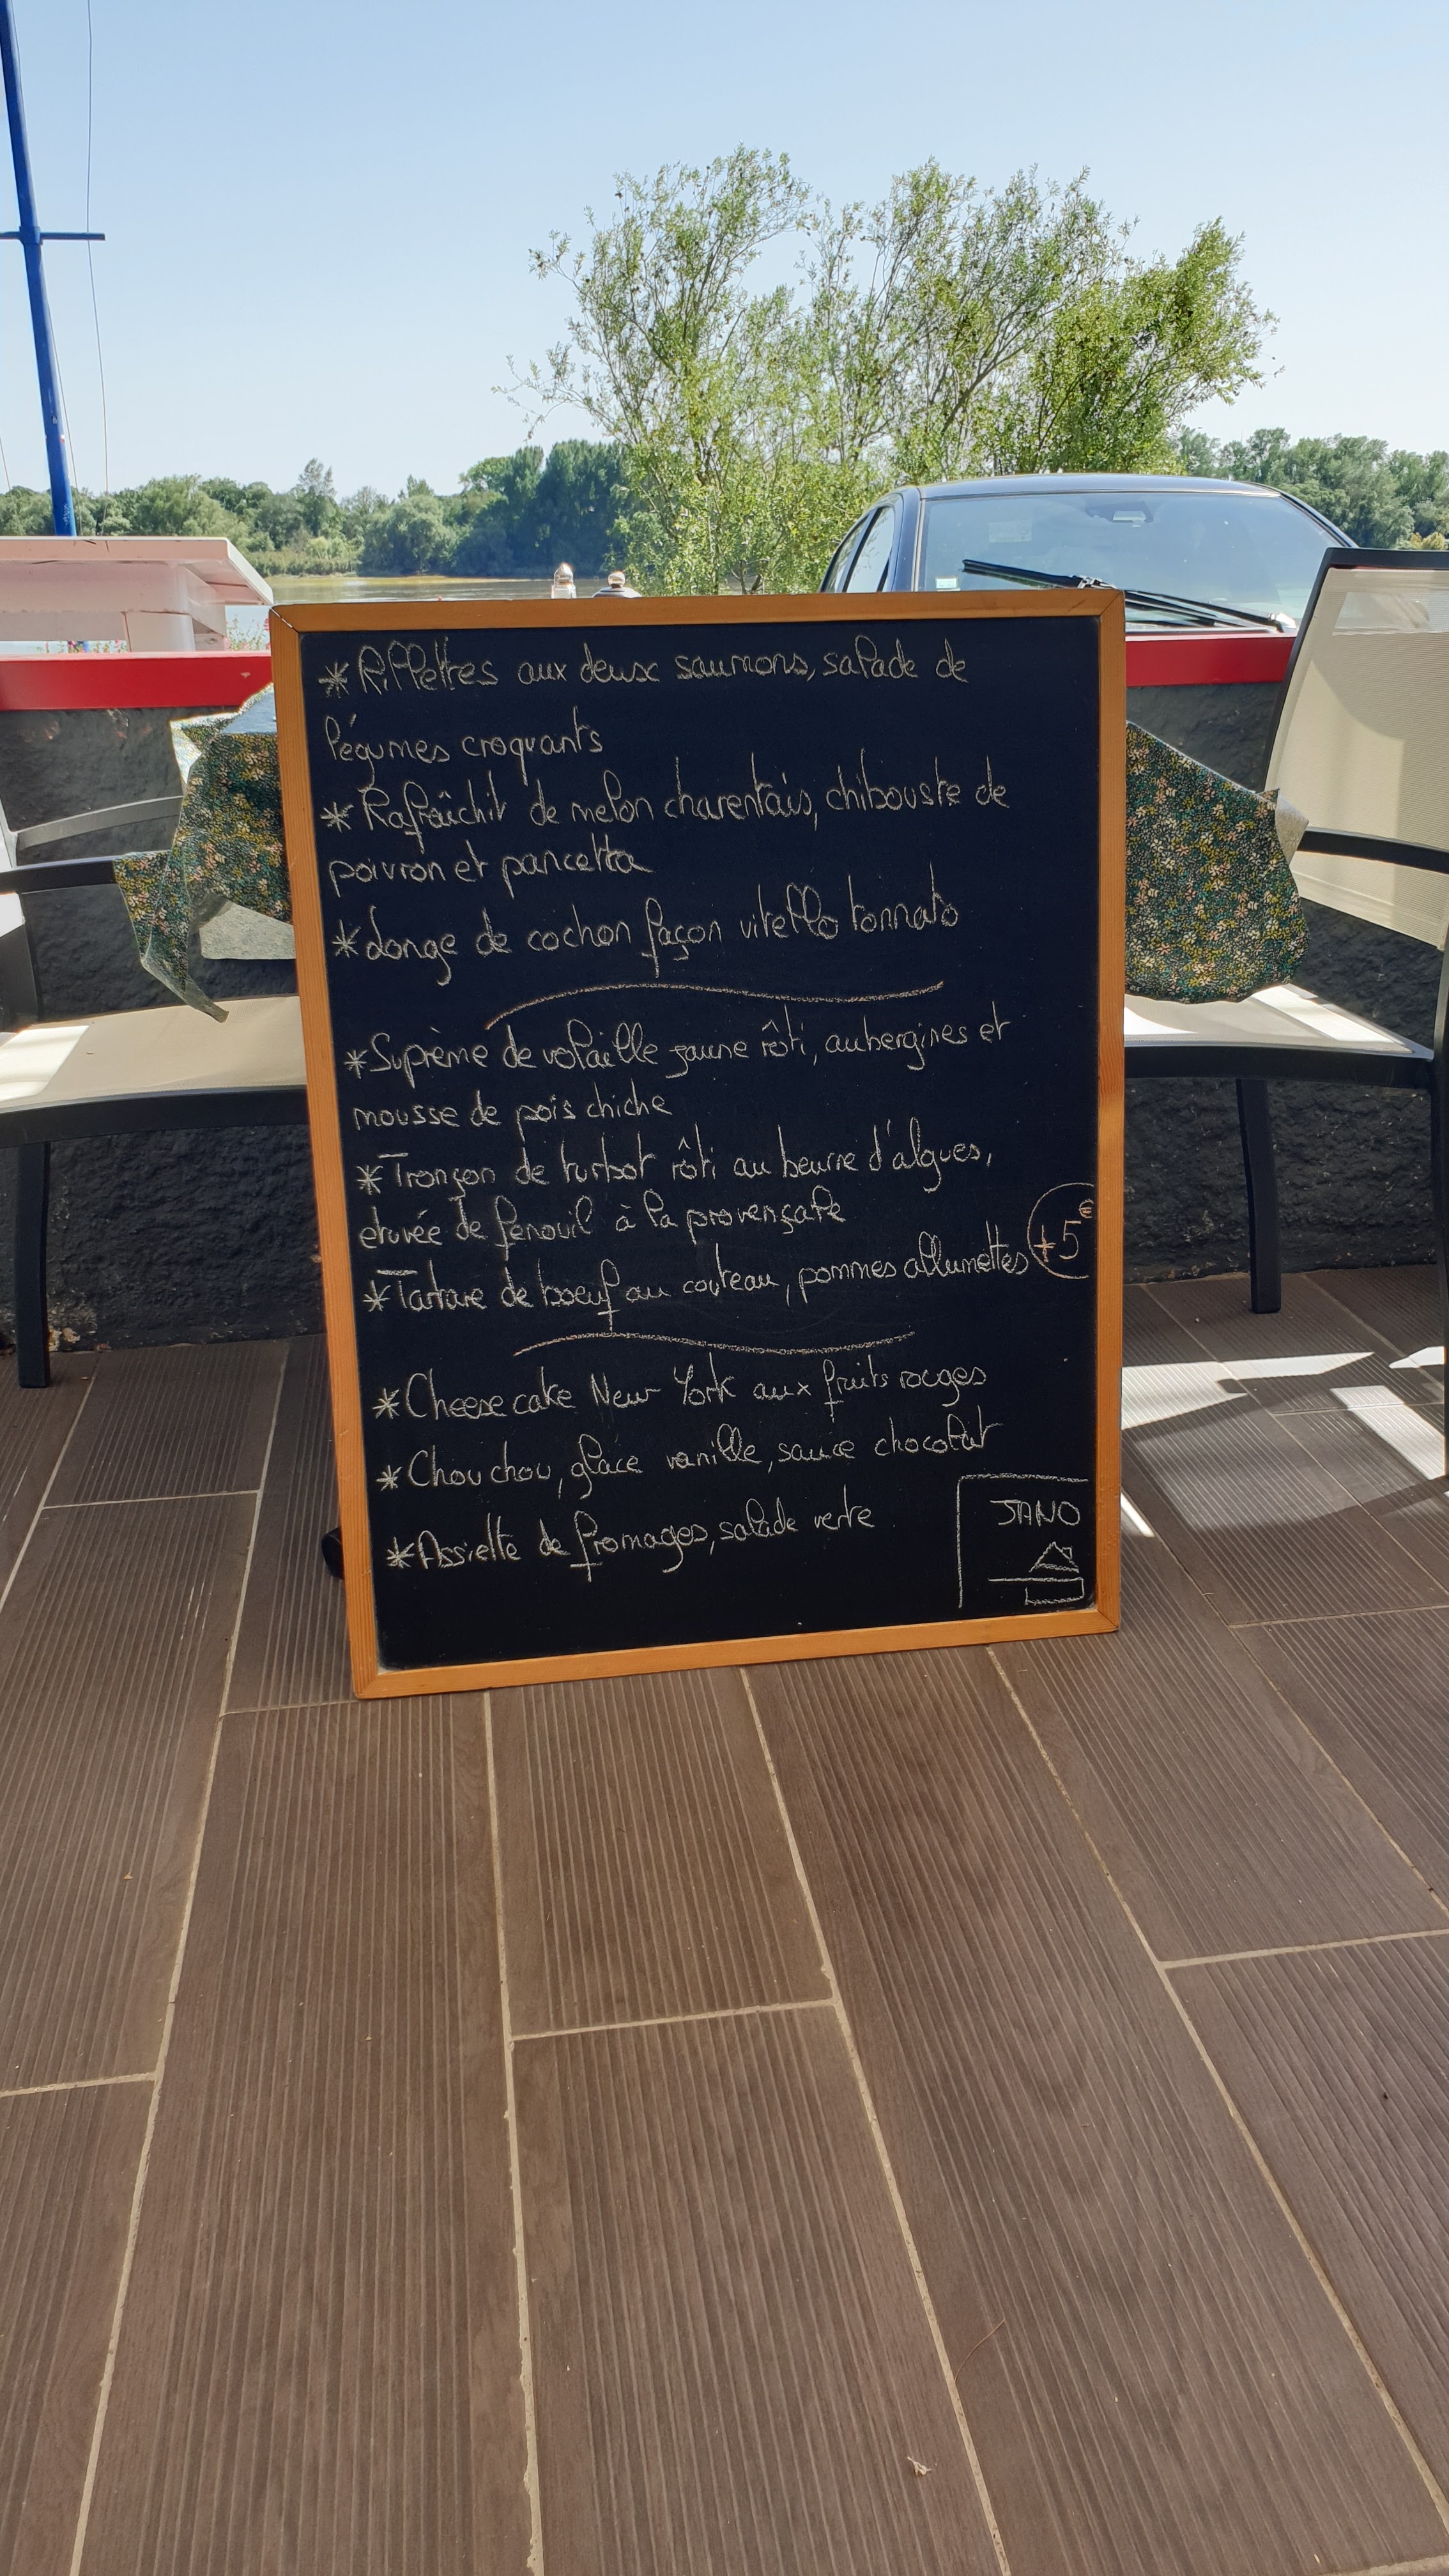 * Rillettes aux deux saumons, salade de
légumes croquants
* Rafraîchit de melon charentais, chibouste de
poivron et pancetta
* Longe de cochon façon vitello tonnato
* Suprème de volaille jaune rôti, aubergines et
mousse de pois chiche
* Tronçon de turbot rôti au beurre d'algues,
étuvée de fenouil à la provençale
+5€
* Tartare de boeuf au couteau, pommes allumettes
* Cheese cake New York aux fruits rouges
* Chou chou, glace vanille, sauce chocolat
* Assiette de fromages, salade verte
JANO